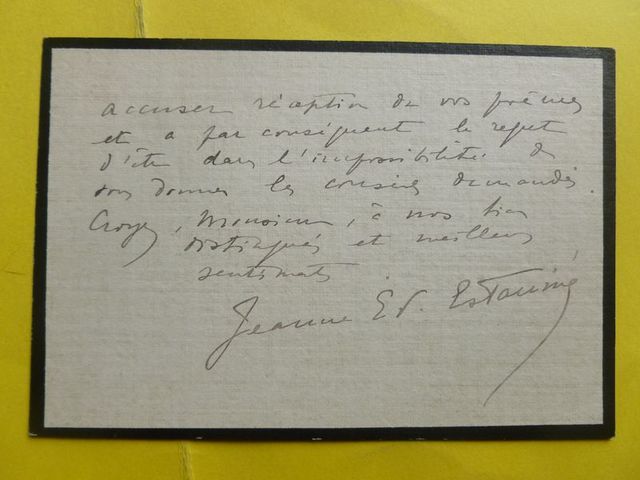 accuser réception de vos poèmes
et a par conséquent le regret
d'être dans l'impossibilité de
vous donner les conseils demandés.
Croyez, Monsieur, à nos bien
distingués et meilleurs
sentiments.
Jeanne Ed. Estaunié